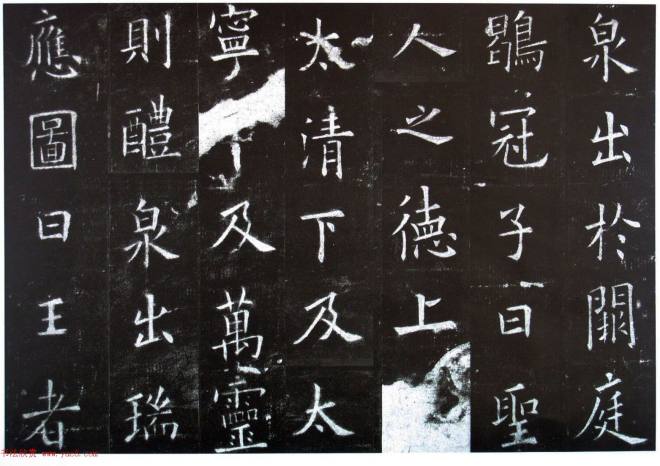 泉出於闕庭
鶡冠子曰聖
人之德上
太清下及太
寧及萬靈
則醴泉出瑞
應圖曰王者
书法欣赏 www.yac8.com